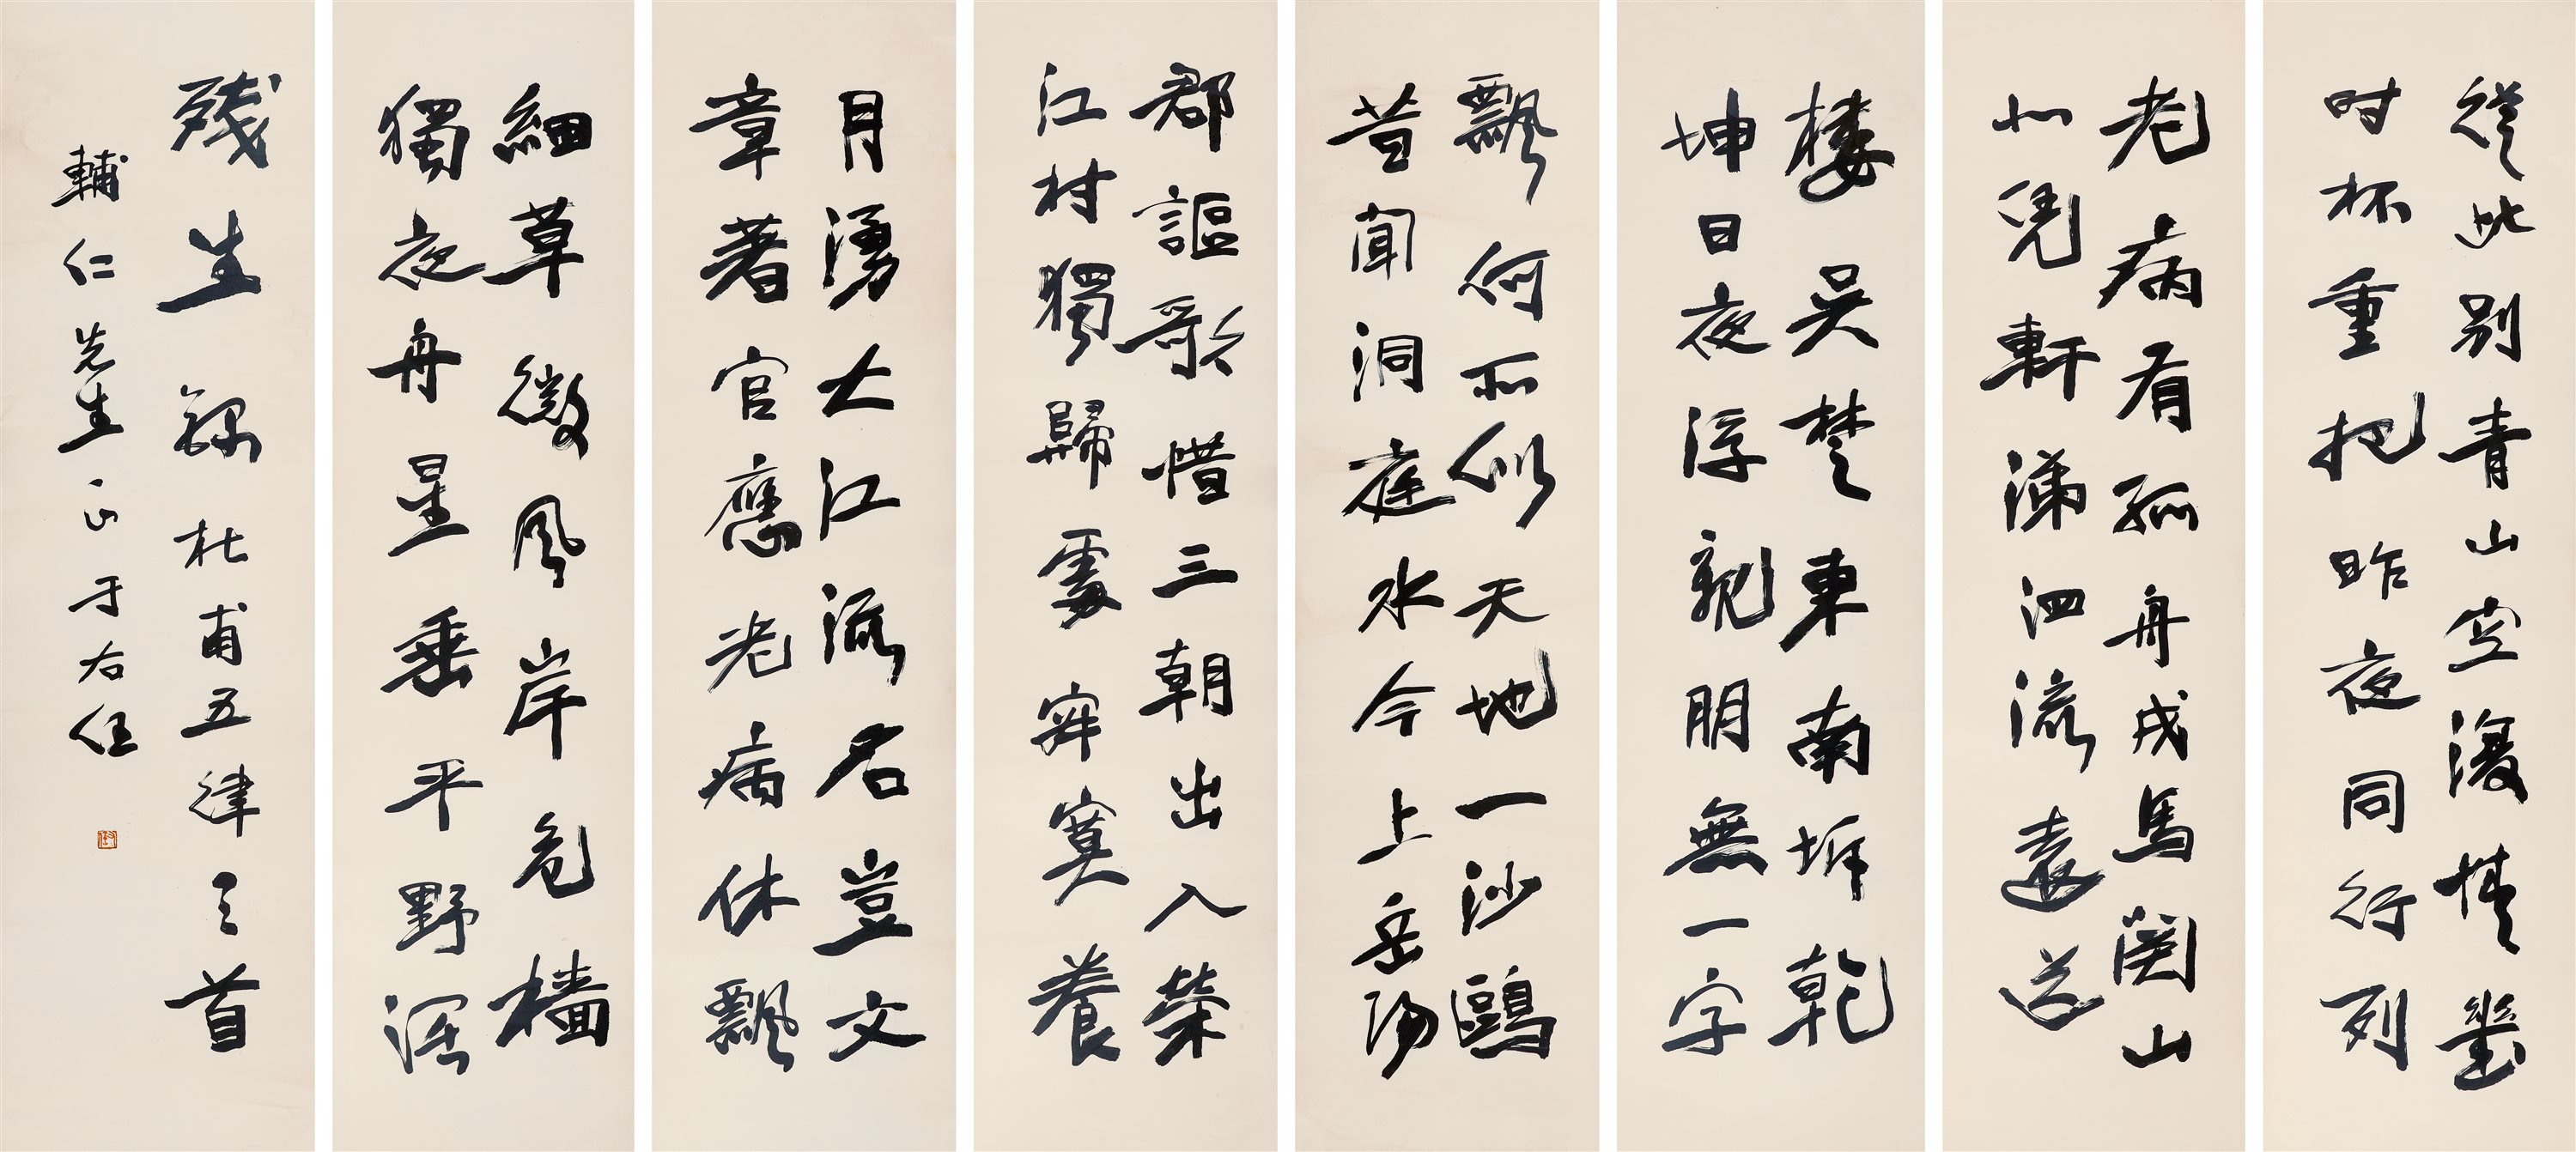 從此別青山空復情幾
时杯重把昨夜同行列
老病有孤舟戎馬関山
北凭軒涕泗流遠送
樓吳楚東南坼乾
坤日夜浮親朋無一字
飄何所似天地一沙鷗
昔聞洞庭水今上岳陽
郡謳歌惜三朝出入榮
江村獨歸處寂寞養
月湧大江流名豈文
章著官應老病休飄
細草微風岸危檣
獨夜舟星垂平野濶
残生 錄杜甫五律三首
輔仁先生正 于右任
右任